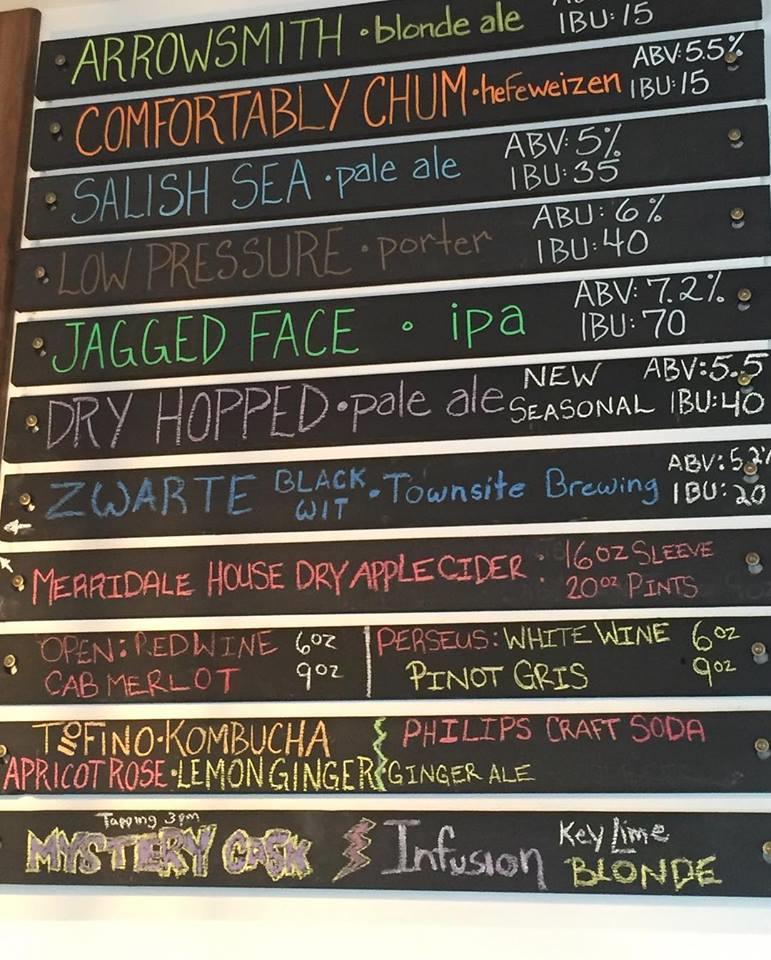 ARROWSMITH • blonde ale IBU: 15
COMFORTABLY CHUM • hefeweizen ABV: 5.5% IBU: 15
SALISH SEA • pale ale ABV: 5% IBU: 35
LOW PRESSURE • porter ABU: 6% IBU: 40
JAGGED FACE • ipa ABV: 7.2% IBU: 70
DRY HOPPED • pale ale NEW SEASONAL ABV: 5.5 IBU: 40
ZWARTE BLACK WIT • Townsite Brewing ABV: 5.2% IBU: 20
MERRIDALE HOUSE DRY APPLE CIDER : 16oz SLEEVE
20oz PINTS
OPEN: RED WINE 6oz | PERSEUS: WHITE WINE 6oz
CAB MERLOT 9oz | PINOT GRIS 9oz
TOFINO • KOMBUCHA PHILIPS CRAFT SODA
APRICOT ROSE • LEMON GINGER GINGER ALE
Tapping 3pm
MYSTERY CASK Infusion Key Lime
BLONDE